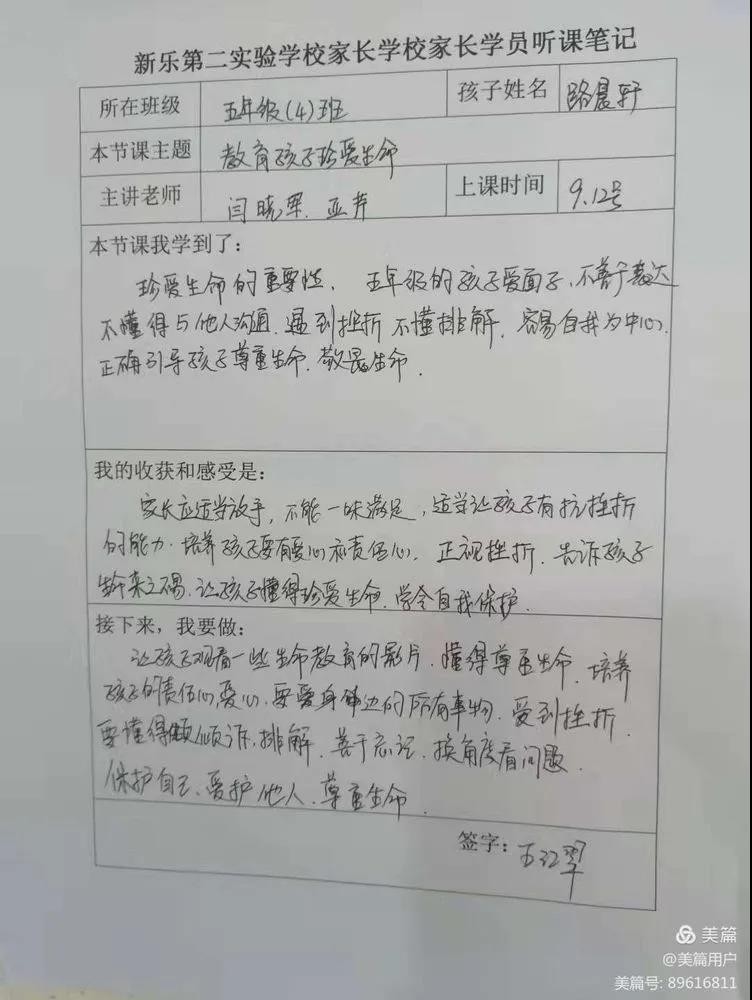 新乐第二实验学校家长学校家长学员听课笔记
所在班级 五年级(4)班 孩子姓名 路晨轩
本节课主题 教育孩子珍爱生命
主讲老师 闫晓军. 亚芹 上课时间 9.12号
本节课我学到了:
珍爱生命的重要性. 五年级的孩子爱面子,不善于表达
不懂得与他人沟通.遇到挫折 不懂排解. 容易自我为中心.
正确引导孩子尊重生命.敬畏生命.
我的收获和感受是:
家长应适当放手,不能一味满足,适当让孩子有抗挫折
的能力.培养孩子要有爱心和责任心. 正视挫折.告诉孩子
生命来之不易.让孩子懂得珍爱生命.学会自我保护.
接下来,我要做:
让孩子观看一些生命教育的影片.懂得尊重生命.培养
孩子的责任心,爱心.要爱身边的所有事物.受到挫折.
要懂得倾诉,排解.善于忘记.换角度看问题.
保护自己、爱护他人、尊重生命.
签字: 王江翠
美篇
@美篇用户
美篇号: 89616811